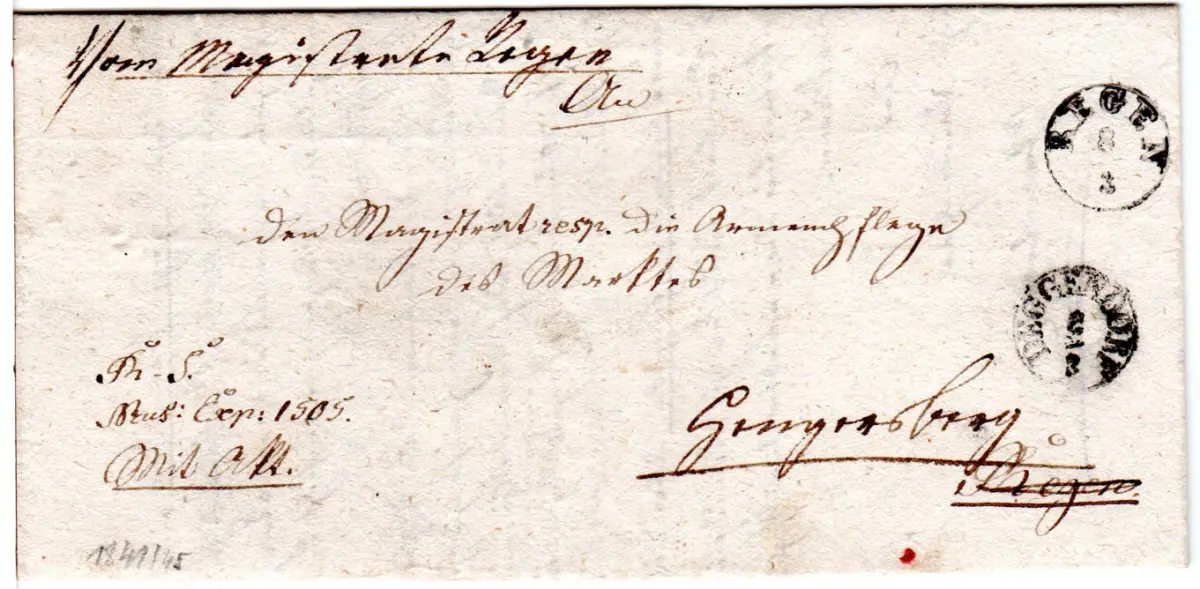 Vom Magistrate Regen
An
REGEN
8
3
den Magistrat resp. die Armenpflege
des Marktes
DEGGENDORF
R. S.
Exp: 1505.
Mit Akt.
Hengersberg
Regen
1841/45